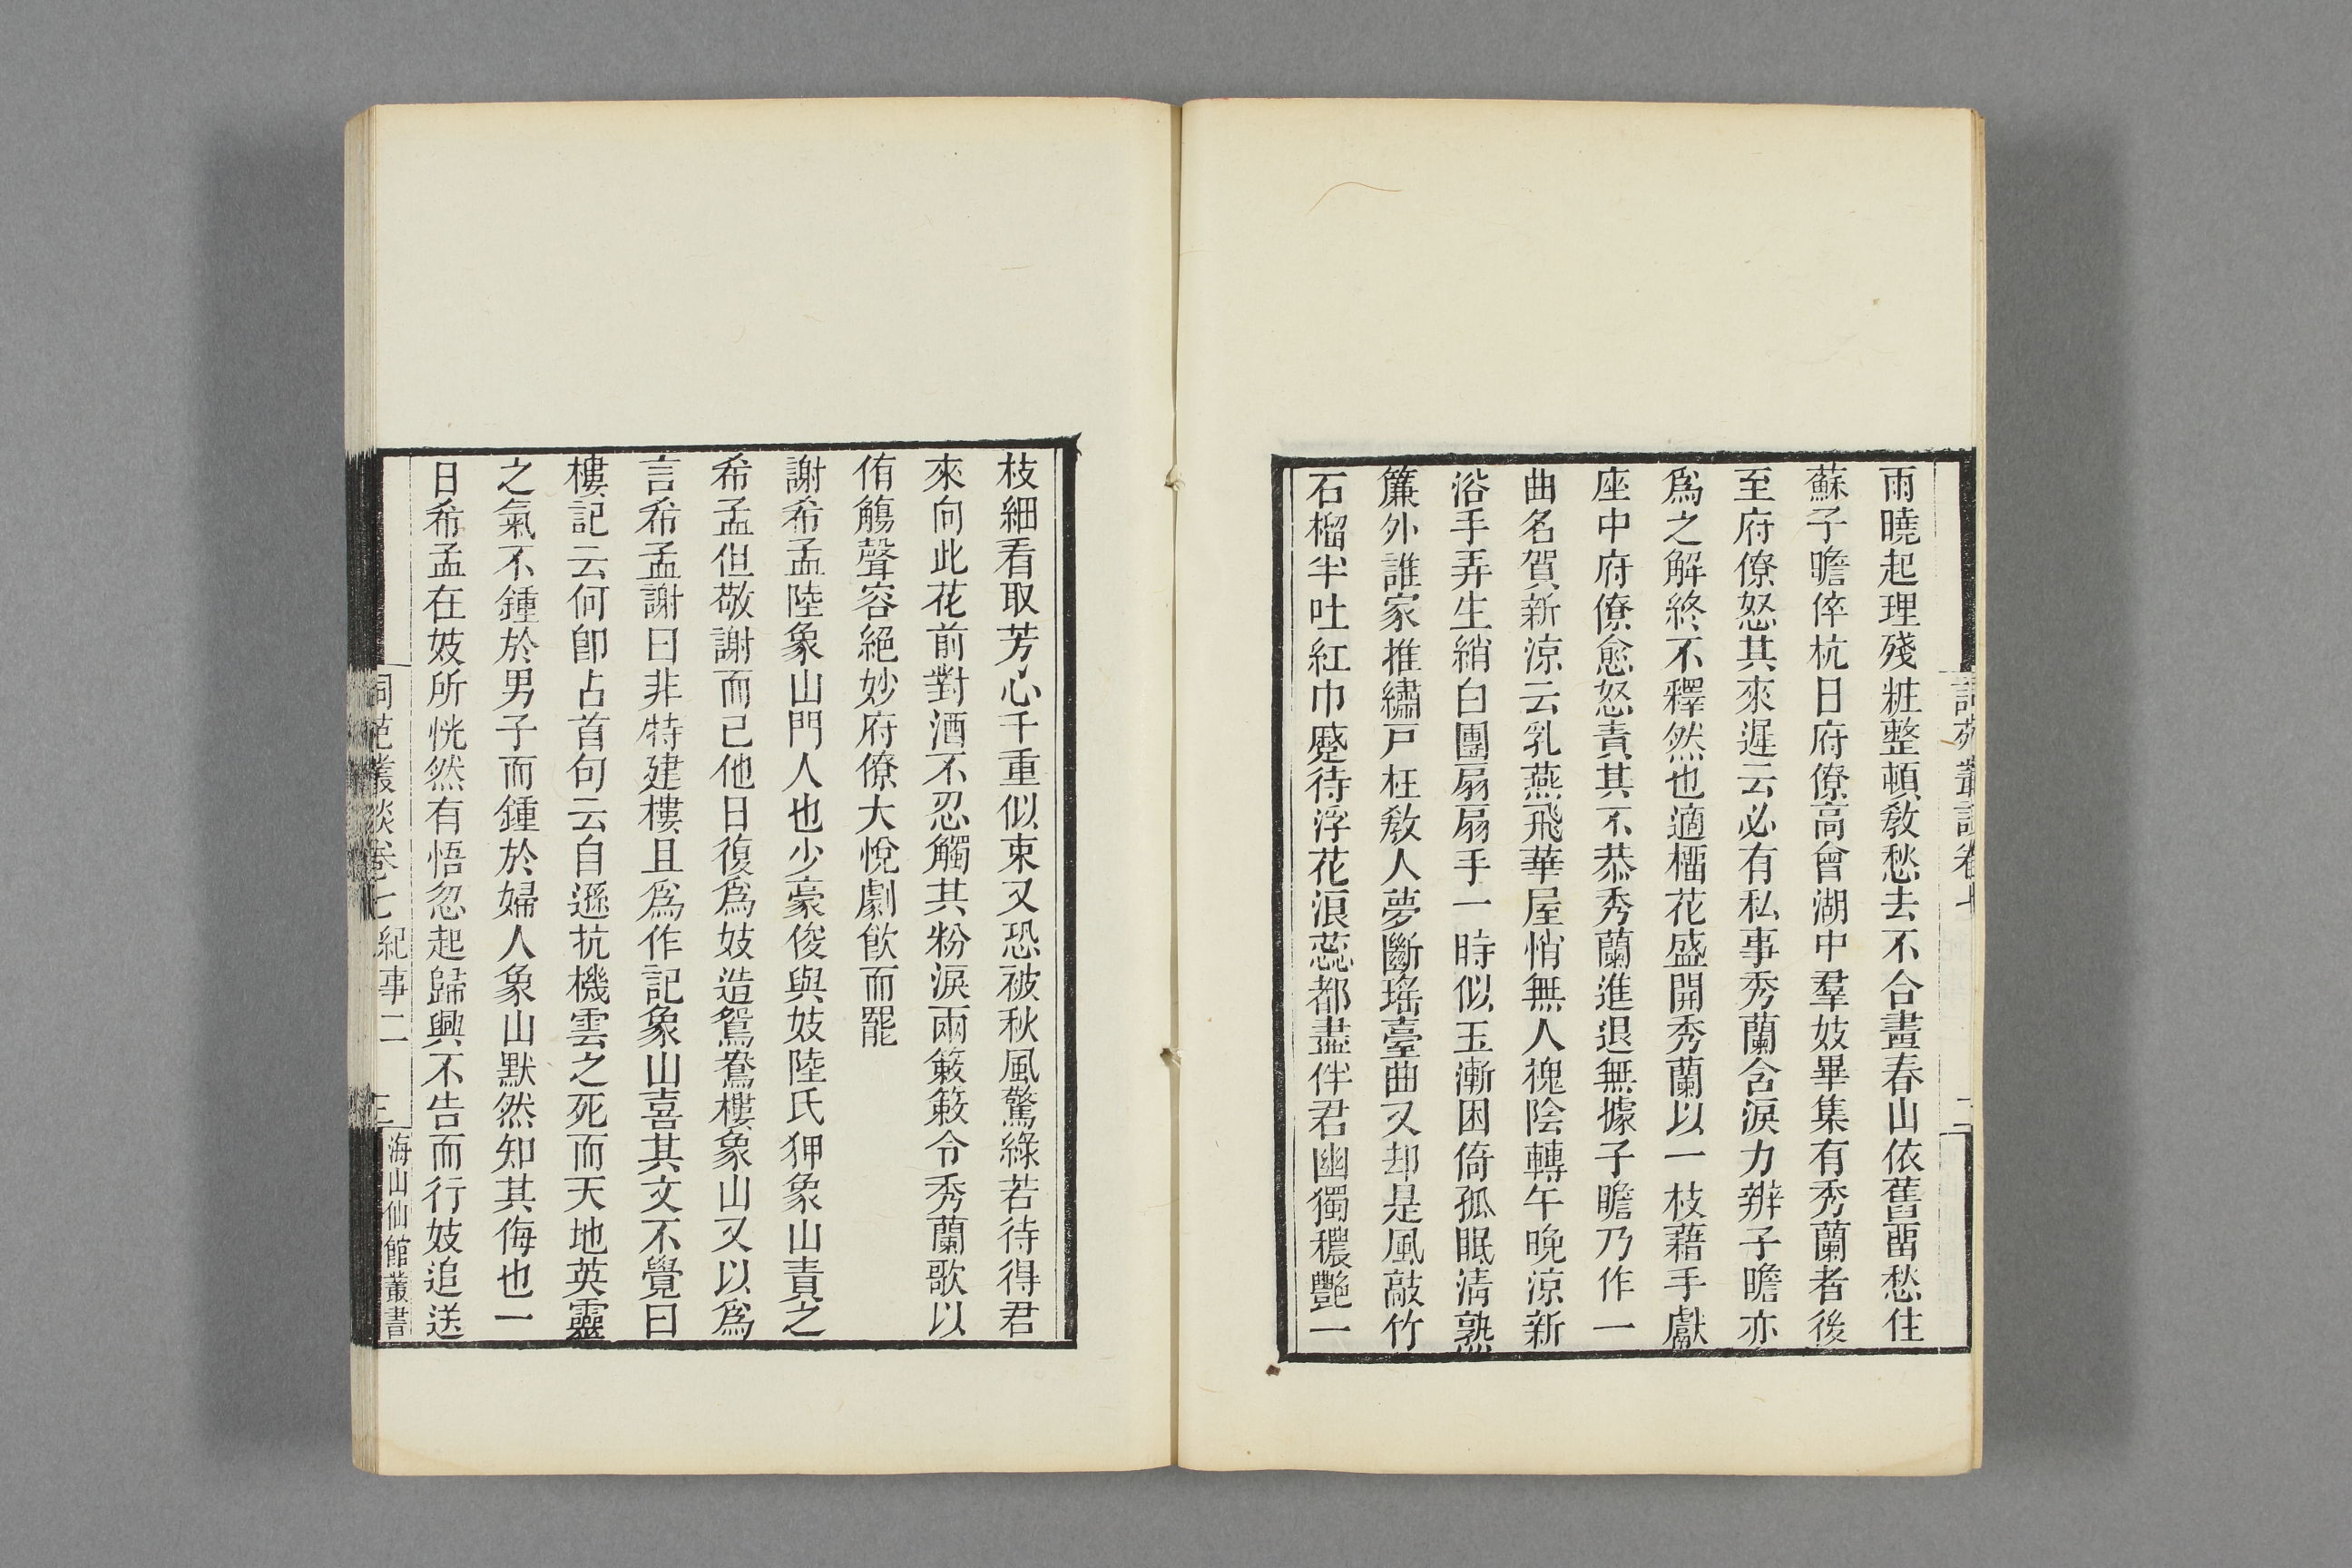 詞苑叢談卷七
二
雨曉起理殘粧整頓敎愁去不合畫春山依舊畱愁住
蘇子瞻倅杭日府僚高會湖中羣妓畢集有秀蘭者後
至府僚怒其來遲云必有私事秀蘭含淚力辨子瞻亦
爲之解終不釋然也適榴花盛開秀蘭以一枝藉手獻
座中府僚愈怒責其不恭秀蘭進退無據子瞻乃作一
曲名賀新涼云乳燕飛華屋悄無人槐陰轉午晚涼新
浴手弄生綃白團扇扇手一時似玉漸困倚孤眠淸熟
簾外誰家推繡戸枉敎人夢斷瑤臺曲又却是風敲竹
石榴半吐紅巾蹙待浮花浪蕊都盡伴君幽獨穠艷一
枝細看取芳心千重似束又恐被秋風驚綠若待得君
來向此花前對酒不忍觸其粉淚兩簌簌令秀蘭歌以
侑觴聲容絕妙府僚大悅劇飮而罷
謝希孟陸象山門人也少豪俊與妓陸氏狎象山責之
希孟但敬謝而已他日復爲妓造鴛鴦樓象山又以爲
言希孟謝曰非特建樓且爲作記象山喜其文不覺曰
樓記云何卽占首句云自遜抗機雲之死而天地英靈
之氣不鍾於男子而鍾於婦人象山默然知其侮也一
日希孟在妓所恍然有悟忽起歸興不告而行妓追送
詞苑叢談卷七 紀事二
三
海山仙館叢書